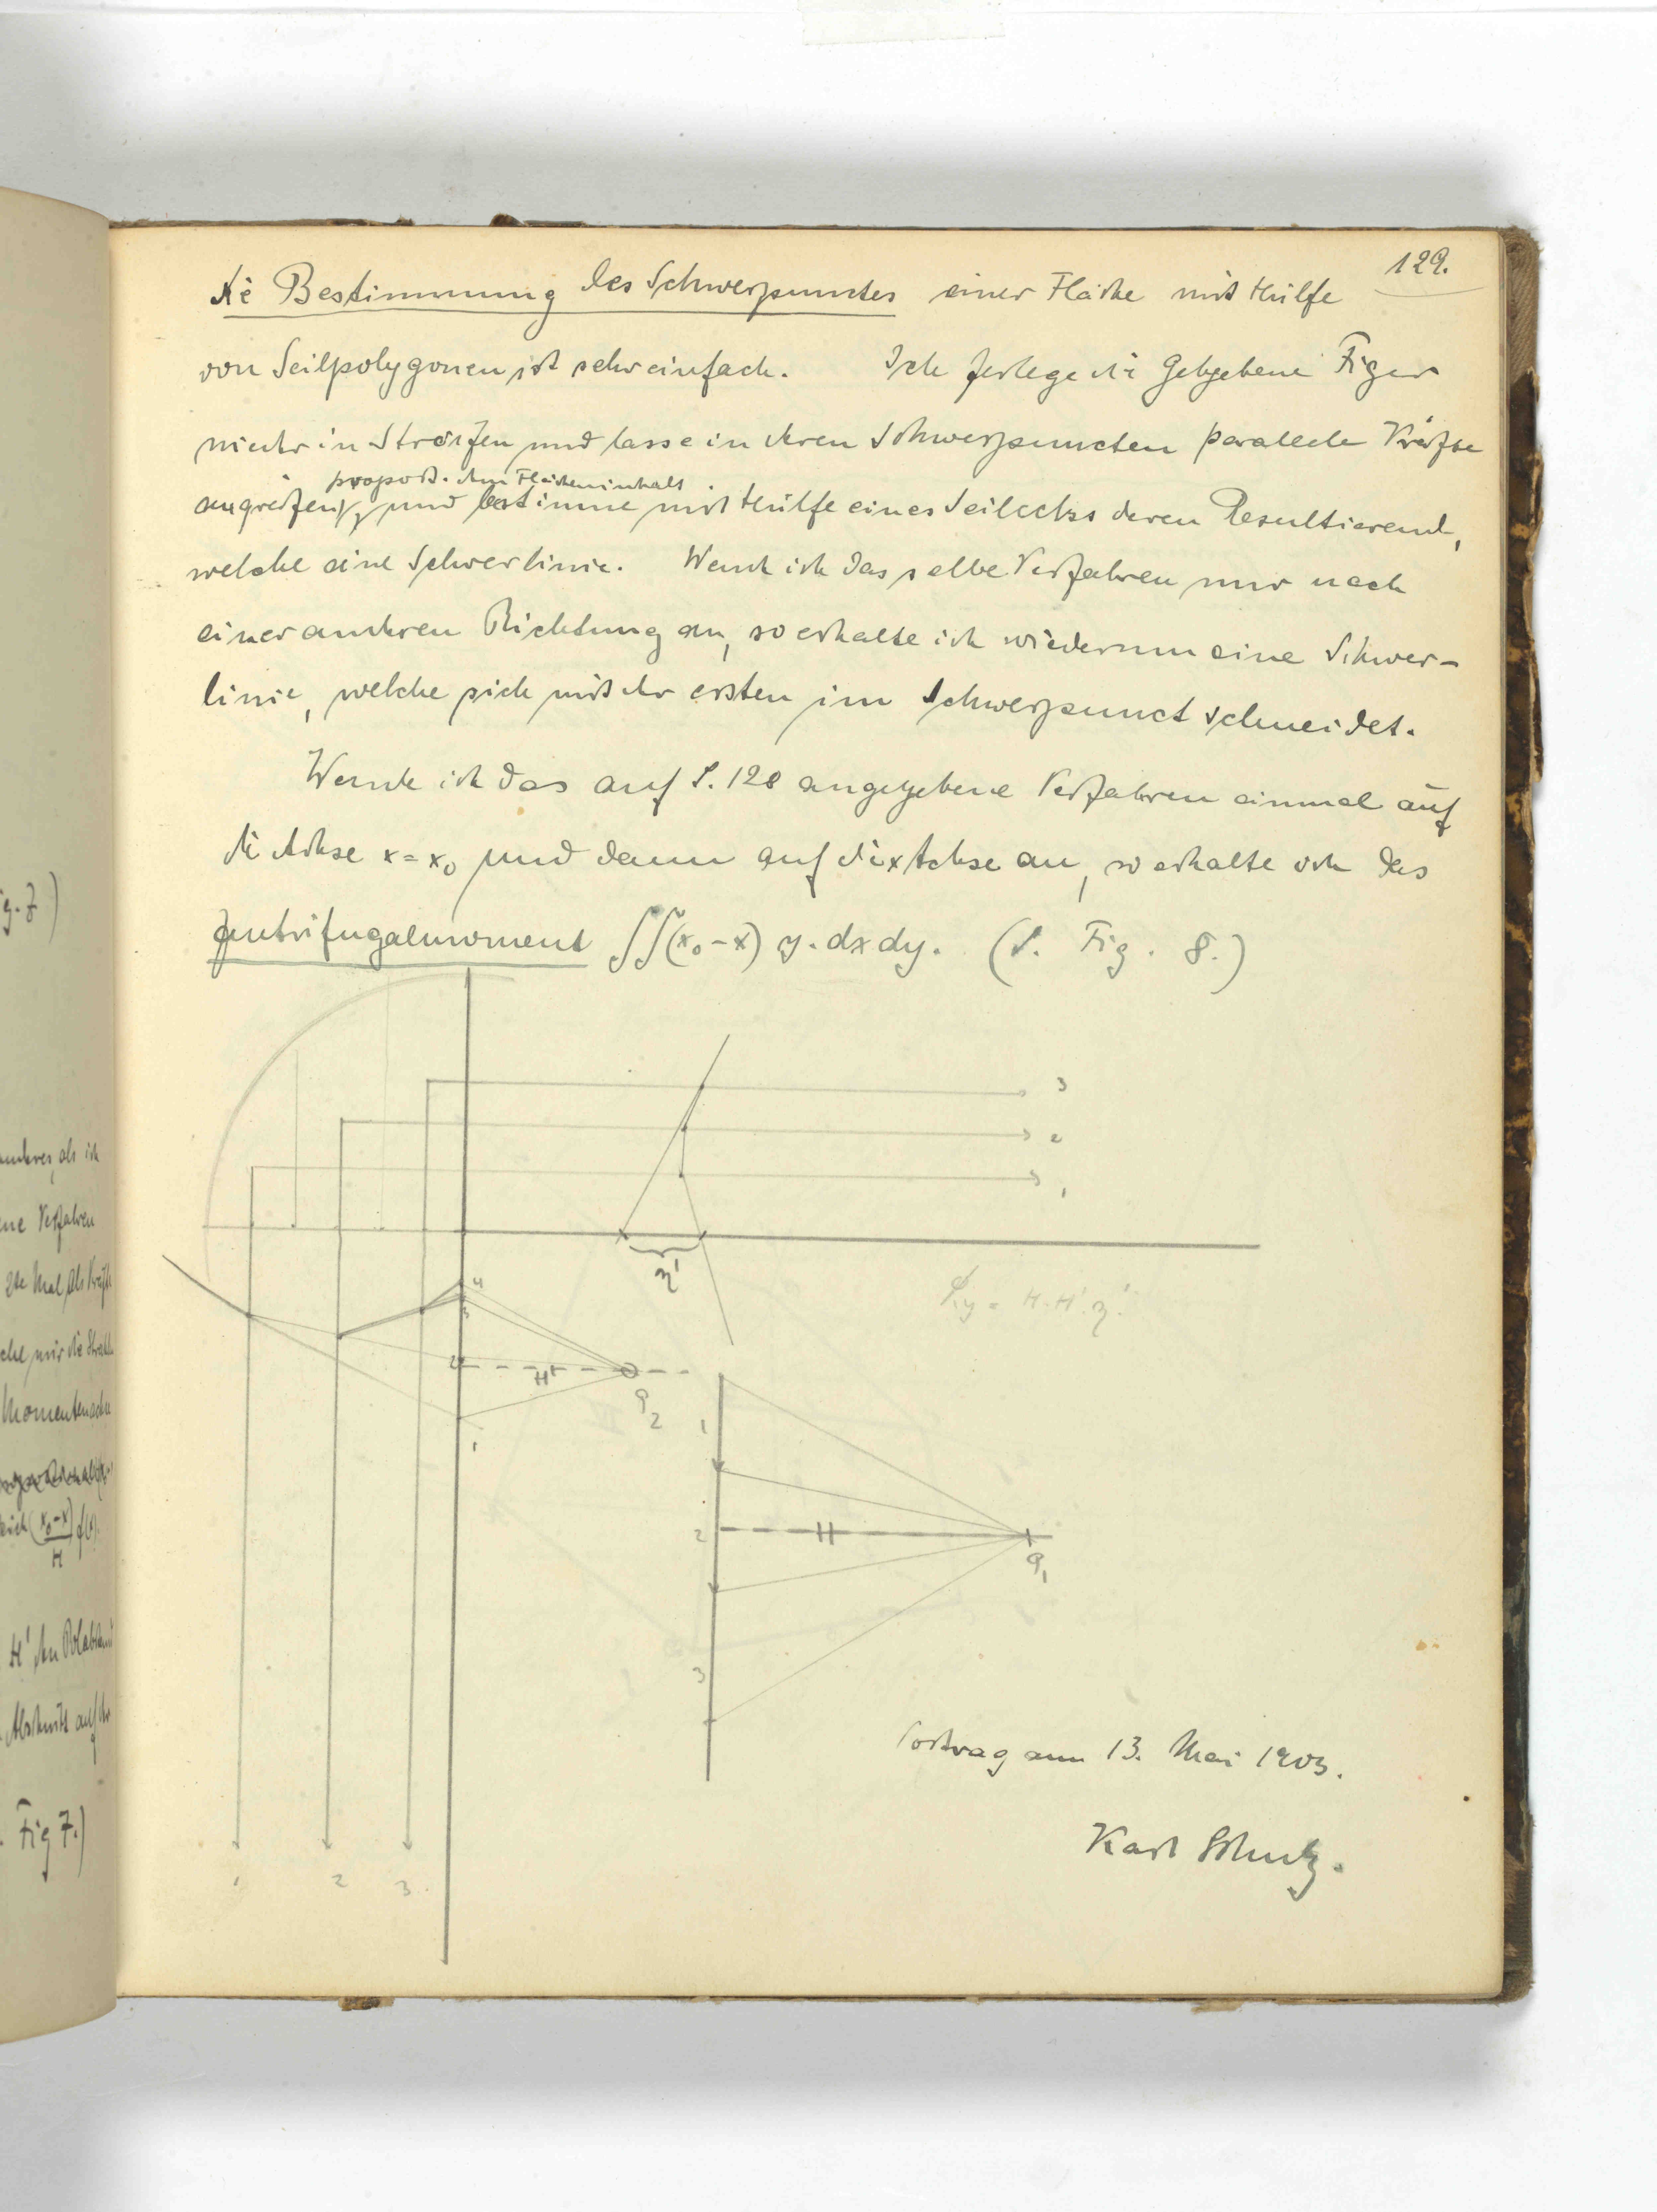 129.
die Bestimmung des Schwerpunctes einer Fläche mit Hülfe
von Seilpolygonen ist sehr einfach. Ich zerlege die gebgebene Figur
wieder in Streifen und lasse in deren Schwerpuncten parallele Kräfte
proport. dem Flächeninhalt
angreifen, und bestimme mit Hülfe eines Seilecks deren Resultierende,
welche eine Schwerlinie. Wende ich dasselbe Verfahren nur nach
einer anderen Richtung an, so erhalte ich wiederum eine Schwer-
linie, welche sich mit der ersten im Schwerpunct schneidet.
Wende ich das auf S. 128 angegebene Verfahren einmal auf
die Achse x = x₀ und dann auf die x Achse an, so erhalte ich das
Zentrifugalmoment ∫∫(x₀-x) y. dx dy. (S. Fig. 8.)
3
2
1
η'
4
3
2
1
H'
P₂
= H. H'. η'.
1
2
3
H
P₁
1
2
3.
Vortrag am 13. Mai 1903.
Karl Schulz.
g. 7)
anderes, als ich
ne Verfahren
2te Mal als Kräfte
Momentenachse
(x₀-x)/H f(x).
H' den Polabstand
Abschnitt auf der
. Fig 7.)